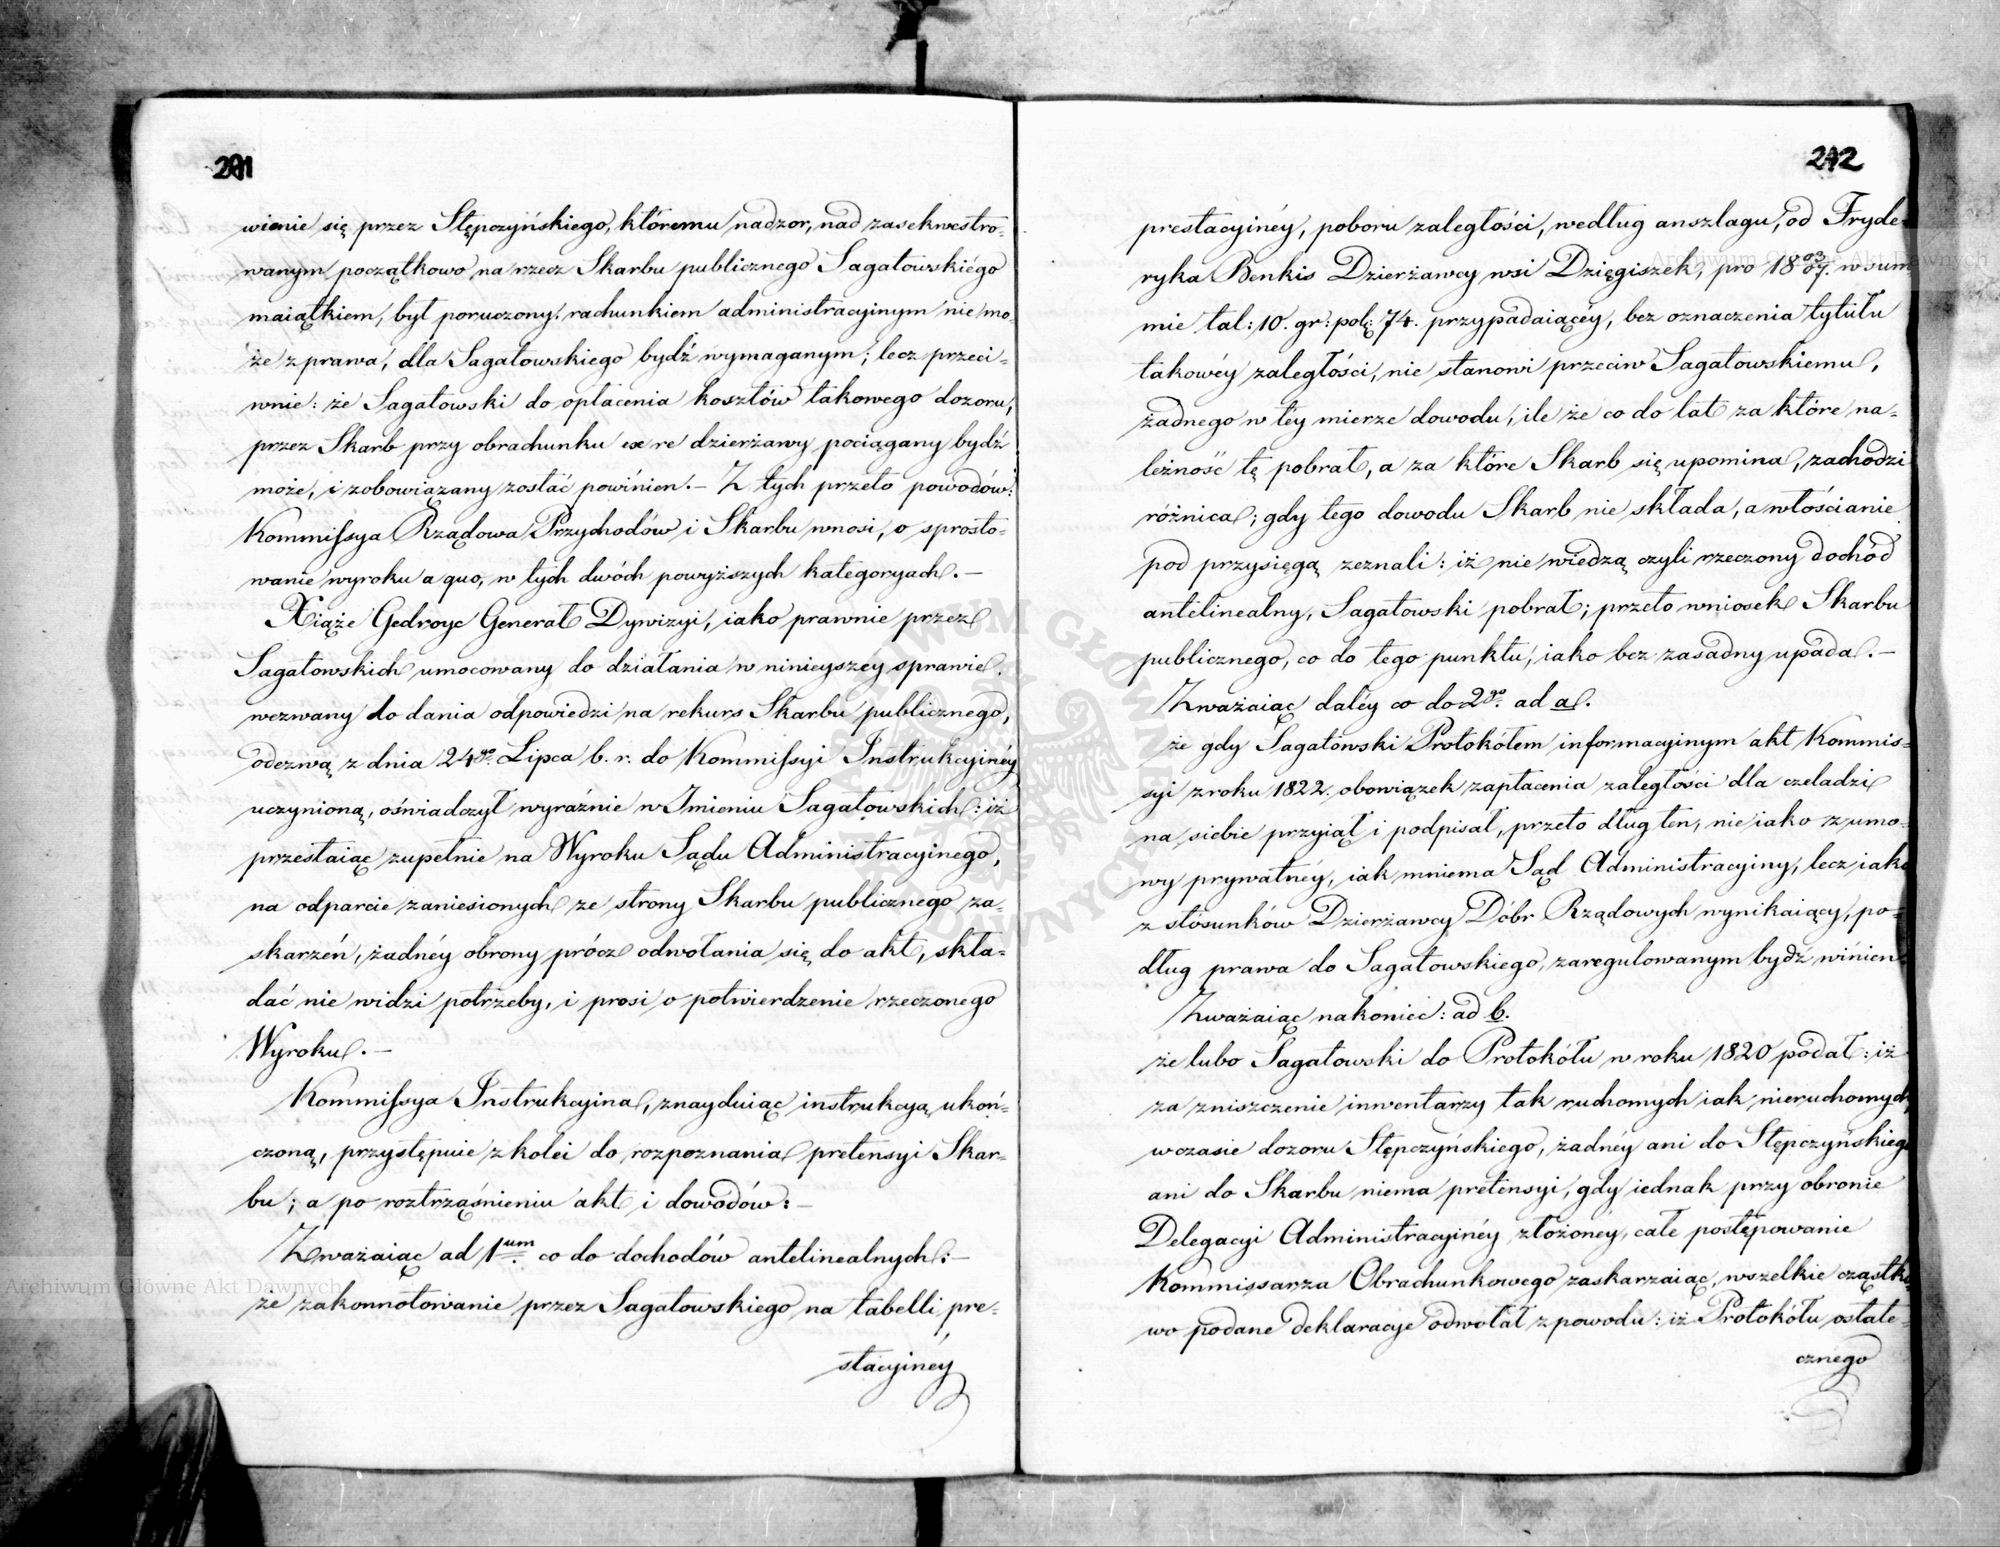 201
wienie się przez Stępczyńskiego, któremu nadzor, nad zasekwestro-
wanym początkowo na rzecz Skarbu publicznego Sagatowskiégo
maiątkiem, był poruczony. rachunkiem administracyinym nie mo-
że z prawa, dla Sagatowskiego bydź wymaganym; lecz przeci-
wnie: że Sagatowski do opłacenia kosztów takowego dozoru,
przez Skarb przy obrachunku ex re dzierżawy pociągany bydź
może, i zobowiązany zostać powinien. – Z tych przeto powodów:
Kommissya Rządowa Przychodów i Skarbu wnosi, o sprosto-
wanie wyroku a quo, w tych dwóch powyższych kategoryach. –
Xiąże Gedroyc Generał Dywizyi, iako prawnie przez
Sagatowskich umocowany do działania w ninieyszéy sprawie.
wezwany do dania odpowiedzi na rekurs Skarbu publicznego,
odezwą z dnia 24go Lipca b. r. do Kommissyi Instrukcyinéy
uczynioną, oświadczył wyraźnie w Imieniu Sagatowskich: iż
przestaiąc zupełnie na Wyroku Sądu Administracyinego,
na odparcie zaniesionych ze strony Skarbu publicznego za-
skarzeń, żadnéy obrony prócz odwołania się do akt, skła-
dać nie widzi potrzeby, i prosi o potwierdzenie rzeczonego
Wyroku. –
Kommissya Instrukcyina, znayduiąc instrukcyą ukoń-
czoną, przystępuie z kolei do rozpoznania pretensyi Skar-
bu; a po roztrząśnieniu akt i dowodów: –
Zważaiąc ad 1um co do dochodów antelinealnych: –
że zakonnotowanie przez Sagatowskiego na tabelli pre-
stacyinéy
242
prestacyinéy, poboru zaległości, według anszlagu, od Fryde-
ryka Benkis Dzierżawcy wsi Dzięgiszek, pro 1803/07. w sum
mie tal: 10. gr: pol: 74. przypadaiącéy, bez oznaczenia tytułu
takowéy zaległości, nie stanowi przeciw Sagatowskiemu,
żadnego w téy mierze dowodu, ile że co do lat za które na-
leżność tę pobrał, a za które Skarb się upomina, zachodzi
różnica; gdy tego dowodu Skarb nie składa, a włościanie
pod przysięgą zeznali: iż nie wiedzą czyli rzeczony dochód
antelinealny, Sagatowski pobrał; przeto wniosek Skarbu
publicznego, co do tego punktu, iako bez zasadny upada. –
Zważaiąc daléy co do 2go ad a.
że gdy Sagatowski Protokółem informacyinym akt Kommis-
syi z roku 1822. obowiązek zapłacenia zaległości dla czeladzi
na siebie przyiął i podpisał, przeto dług ten, nie iako z umo-
wy prywatnéy, iak mniema Sąd Administracyiny, lecz iako
z stósunków Dzierżawcy Dóbr Rządowych wynikaiący, po-
dług prawa do Sagatowskiego, zaregulowanym bydź winien
Zważaiąc nakoniec: ad b.
że lubo Sagatowski do Protokółu w roku 1820 podał: iż
za zniszczenie inwentarzy tak ruchomych iak nieruchomych
w czasie dozoru Stępczyńskiego, żadnéy ani do Stępczyńskiego
ani do Skarbu niema pretensyi, gdy iednak przy obronie
Delegacyi Administracyinéy złożonéy, całe postępowanie
Kommissarza Obrachunkowego zaskarzaiąc, wszelkie cząstko
wo podane deklaracye odwołał z powodu: iż Protokółu ostate-
cznego
Archiwum Główne Akt Dawnych
Archiwum Główne Akt Dawnych